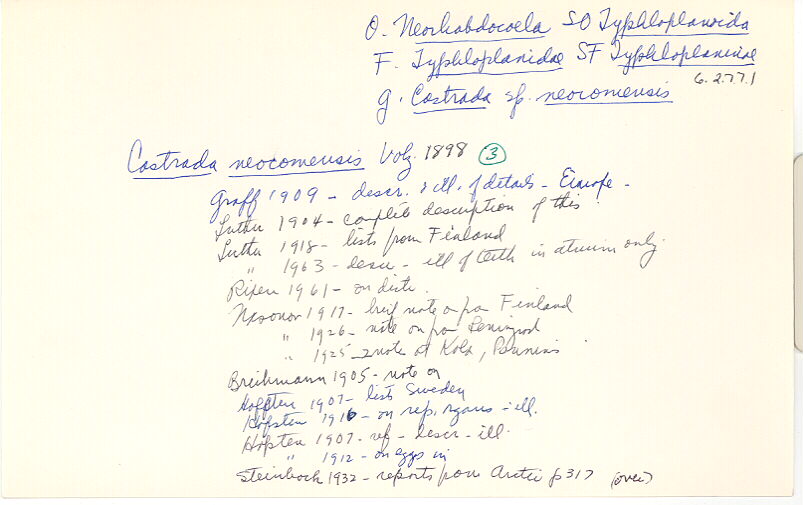 O. Neorhabdocoela SO Typhloplanoida
F. Typhloplanidae SF Typhloplaninae
6.2.7.7.1
g. Castrada sp. neocomensis
Castrada neocomensis Volz 1898 3
Graff 1909 - descr. & ill. of details - Europe -
Luther 1904 - complete description of this
Luther 1918 - lists from Finland
" 1963 - descr - ill of teeth in atrium only
1961 - on distr.
Nasonov 1917 - brief note on from Finland
" 1926 - note on from Leningrad
" 1925 - note at Kola,
1905 - note on
Hofsten 1907 - lists Sweden
Hofsten 1916 - on rep. organs - ill.
Hofsten 1907 - ref - descr - ill.
" 1912 - on eggs in
Steinbock 1932 - reports from Arctic p317 (over)